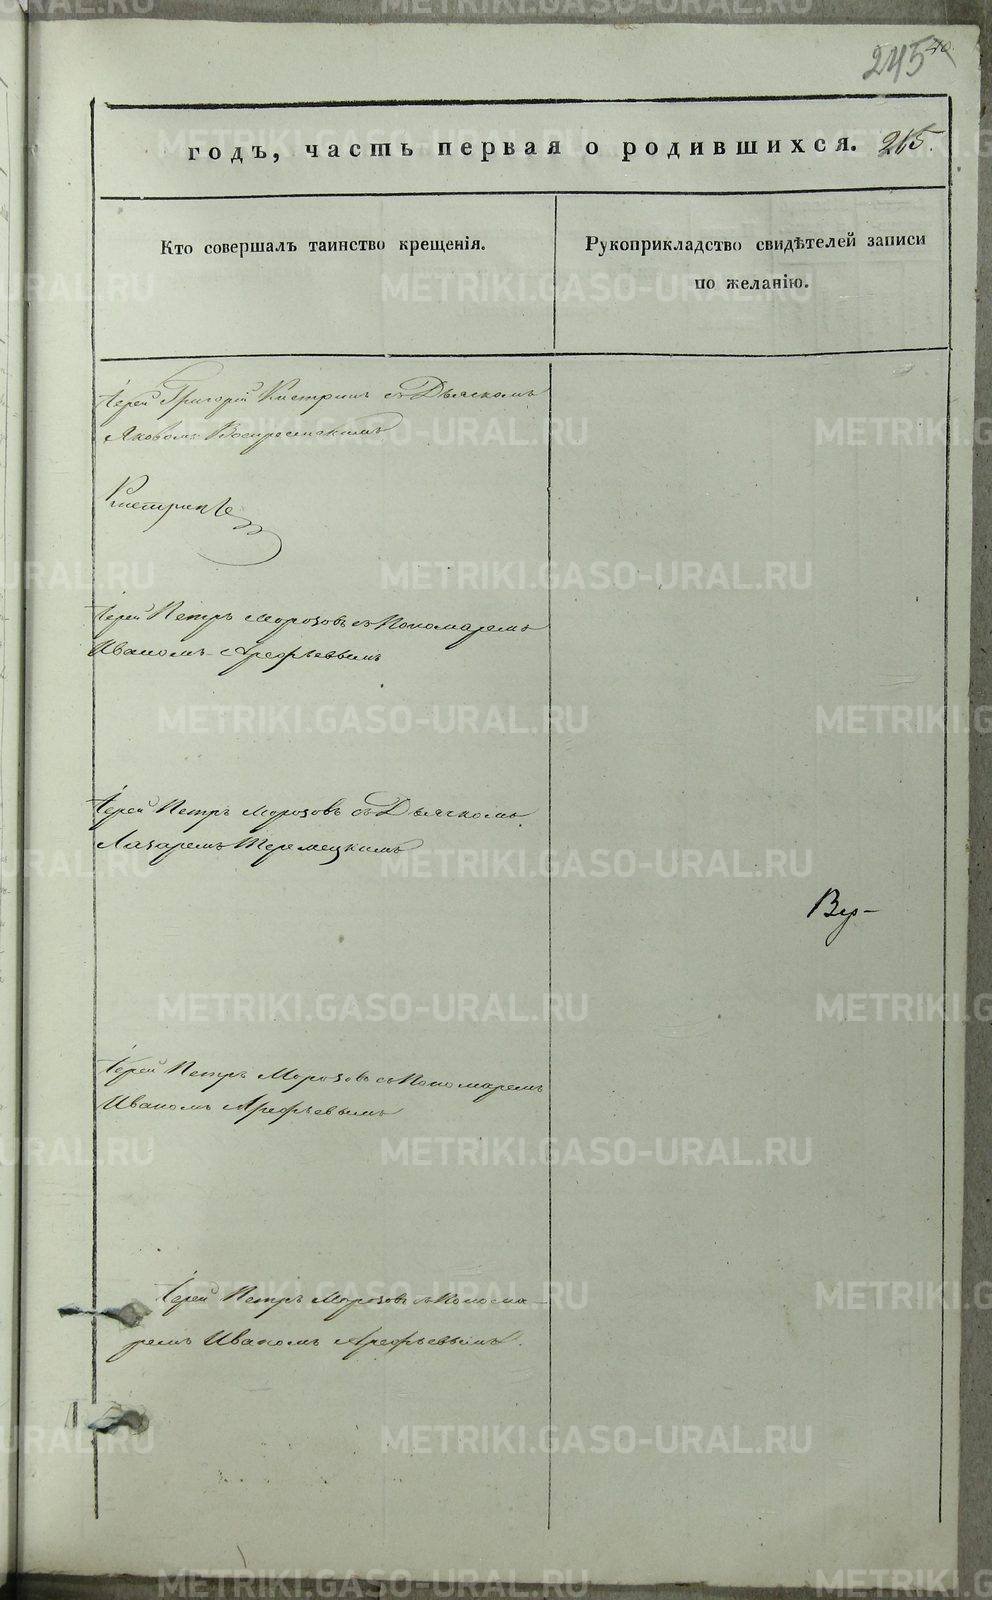 245
годъ, часть первая о родившихся. 265.
Кто совершалъ таинство крещенія.
Рукоприкладство свидѣтелей записи
по желанію.
Іерей Григорій Кистринъ съ Дьячкомъ
Яковомъ Воскресенскимъ
Кистринъ
Іерей Петръ Морозовъ съ Пономаремъ
Иваномъ Арефьевымъ
Іерей Петръ Морозовъ съ Дьячкомъ
Лазаремъ Теремецкимъ
Іерей Петръ Морозовъ съ Пономаремъ
Иваномъ Арефьевымъ
Іерей Петръ Морозовъ съ Понома-
ремъ Иваномъ Арефьевымъ.
METRIKI.GASO-URAL.RU